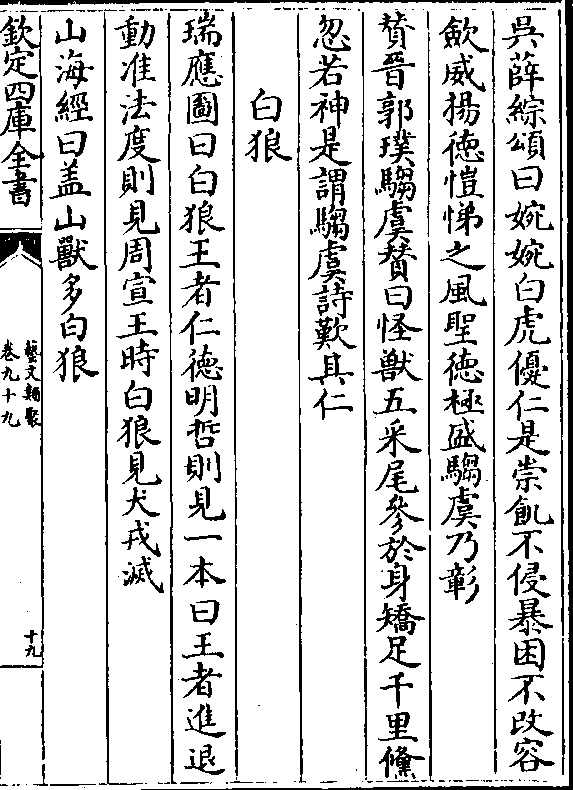 吳薛綜頌曰婉婉白虎優仁是崇飢不侵暴困不改容
歛威揚徳愷悌之風聖徳極盛騶虞乃彰
贊晉郭璞騶虞賛曰怪獸五采尾參於身矯足千里儵
忽若神是謂騶虞詩歎其仁
白狼
瑞應圖曰白狼王者仁徳明哲則見一本曰王者進退
動准法度則見周宣王時白狼見犬戎滅
山海經曰盖山獸多白狼
欽定四庫全書
藝文類聚
卷九十九
十九